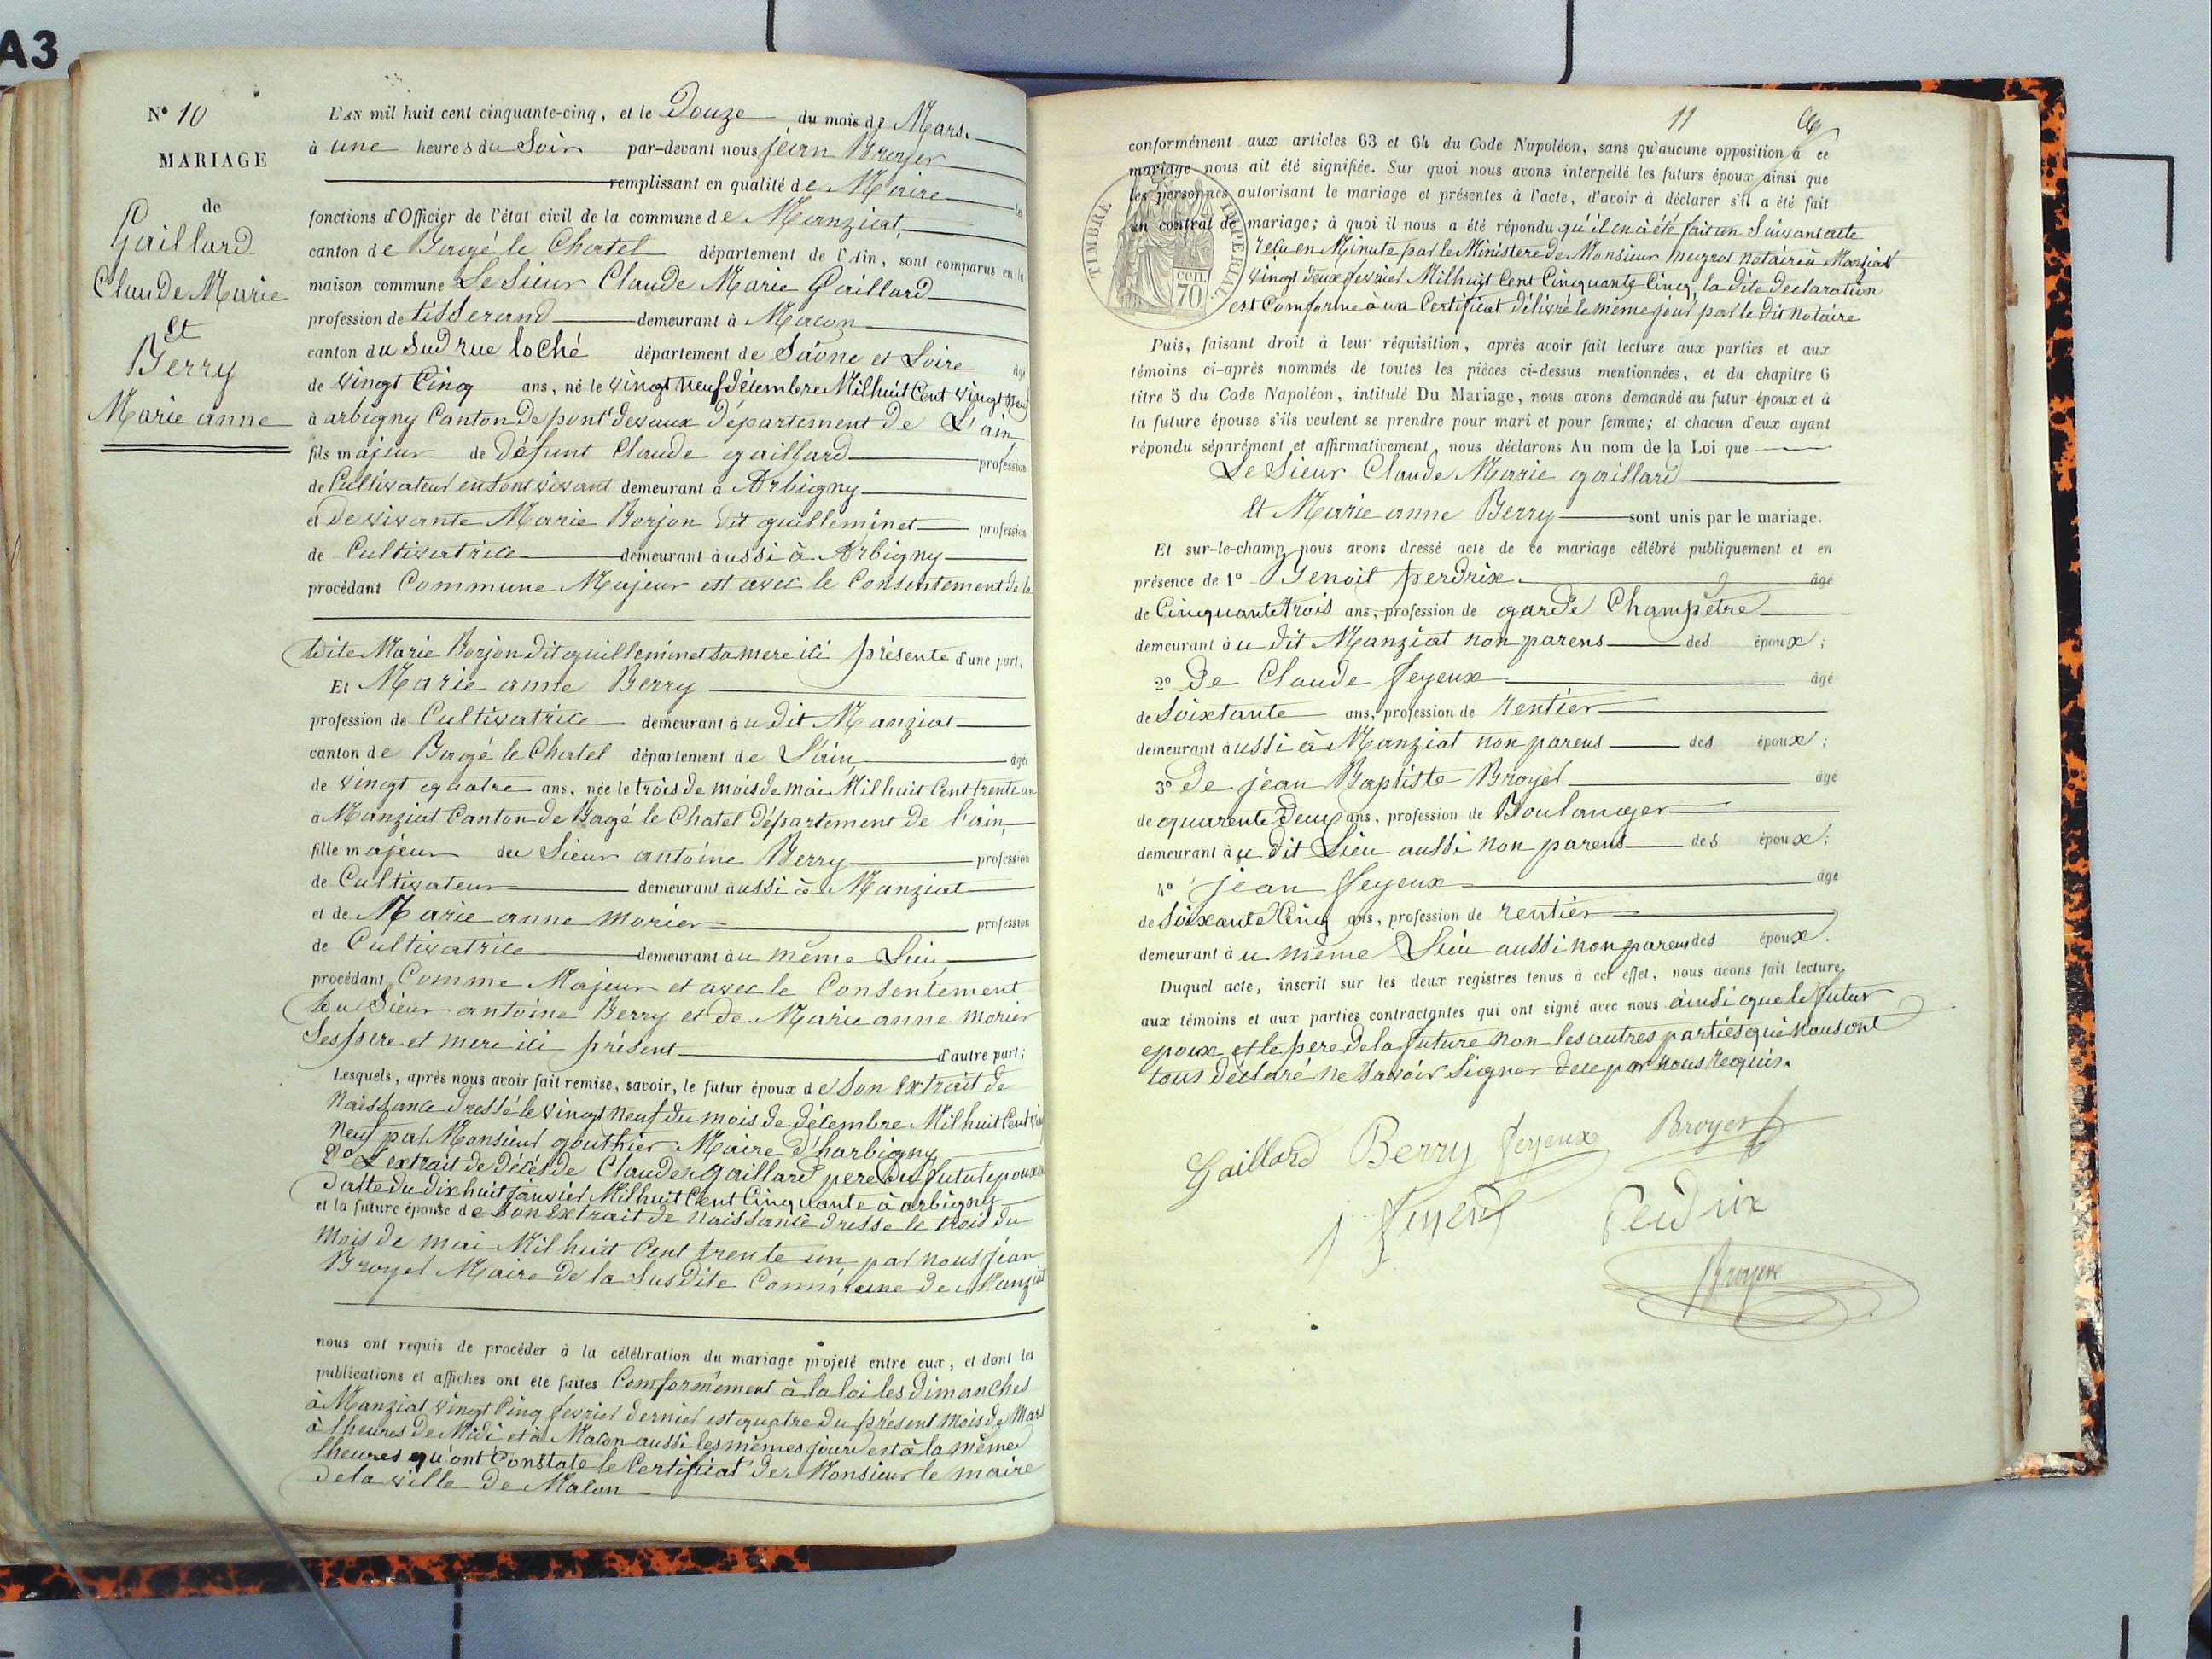 A3
N° 10
MARIAGE
de
Gaillard
Claude Marie
Et
Berry
Marie anne
L'AN mil huit cent cinquante-cinq, et le Douze du mois de Mars.
à une heures du Soir par-devant nous jean Broyer
remplissant en qualité de Maire les
fonctions d'Officier de l'état civil de la commune de Manziat
canton de Bagé le Chatel département de l'Ain, sont comparus en la
maison commune Le Sieur Claude Marie Gaillard
profession de tisserand demeurant à Macon
canton du Sud rue loché département de Saône et Loire âgé
de vingt Cinq ans, né le vingt neuf décembre Mil huit Cent vingt neuf
à arbigny Canton de pont devaux Département de L'ain
fils majeur de défunt Claude gaillard profession
de Cultivateur en sont vivant demeurant à Arbigny
et de vivante Marie Borjon dit guilleminet profession
de Cultivatrice demeurant aussi à Arbigny
procédant Commune Majeur est avec le Consentement de la
dite Marie Borjon dit guilleminet sa mere ici présente d'une part;
Et Marie anne Berry
profession de Cultivatrice demeurant au dit Manziat
canton de Bagé le Chatel département de L'ain âgée
de vingt quatre ans, née le trois de mois de mai Mil huit Cent trente un
à Manziat Canton de Bagé le Chatel Département de l'ain
fille majeur du Sieur antoine Berry profession
de Cultivateur demeurant aussi à Manziat
et de Marie anne morier profession
de Cultivatrice demeurant au même Lieu
procédant Comme Majeur et avec le Consentement
du Sieur antoine Berry et de Marie anne morier
Ses pere et mere ici présent d'autre part;
Lesquels, après nous avoir fait remise, savoir, le futur époux de Son extrait de
Naissance dressé le vingt neuf du mois de décembre Mil huit Cent vingt
neuf par Monsieur gouthier Maire d'harbigny
2° L'extrait de décès de Claude gaillard pere du futur epoux en
datte du dix huit janvier Mil huit Cent Cinquante à arbigny
et la future épouse de Son extrait de Naissance dresse le trois du
mois de mai Mil huit Cent trente un par nous jean
Broyer Maire de la Susdite Commune de Manziat
nous ont requis de procéder à la célébration du mariage projeté entre eux, et dont les
publications et affiches ont été faites Comformement à la loi les dimanches
à Manziat vingt Cinq fevrier dernier est quatre du présent mois de Mars
à lheures de Midi et à Macon aussi les mêmes jours est à la même
lheures qu'ont Constate le Certificat de Monsieur le maire
de la ville de Macon
11
conformément aux articles 63 et 64 du Code Napoléon, sans qu'aucune opposition à ce
mariage nous ait été signifiée. Sur quoi nous avons interpellé les futurs époux ainsi que
les personnes autorisant le mariage et présentes à l'acte, d'avoir à déclarer s'il a été fait
un contrat de mariage; à quoi il nous a été répondu qu'il en a été fait un Suivant acte
recu en Minute par le Ministere de Monsieur notaire à Manziat
vingt deux fevrier Mil huit Cent Cinquante Cinq, la dite declaration
est Comforme à un Certificat délivré le même jour par le dit Notaire
TIMBRE IMPERIAL
70 cen
Puis, faisant droit à leur réquisition, après avoir fait lecture aux parties et aux
témoins ci-après nommés de toutes les pièces ci-dessus mentionnées, et du chapitre 6
titre 5 du Code Napoléon, intitulé Du Mariage, nous avons demandé au futur époux et à
la future épouse s'ils veulent se prendre pour mari et pour femme; et chacun d'eux ayant
répondu séparément et affirmativement, nous déclarons Au nom de la Loi que
Le Sieur Claude Marie gaillard
Et Marie anne Berry sont unis par le mariage.
Et sur-le-champ nous avons dressé acte de ce mariage célébré publiquement et en
présence de 1° Benoit perdrix âgé
de Cinquante trois ans, profession de garde Champetre
demeurant au dit Manziat non parens des époux;
2° De Claude feyeux âgé
de Soixtante ans, profession de rentier
demeurant aussi à Manziat non parens des époux;
3° de jean Baptiste Broyer âgé
de quarente deux ans, profession de Boulanger
demeurant au dit Lieu aussi non parens des époux;
4° jean feyeux âgé
de Soixante Cinq ans, profession de rentier
demeurant au même Lieu aussi non parens des époux.
Duquel acte, inscrit sur les deux registres tenus à cet effet, nous avons fait lecture
aux témoins et aux parties contractantes qui ont signé avec nous ainsi que le futur
epoux et le pere de la future non les autres parties qui nous ont
tous déclaré ne Savoir Signer de ce par nous Requis.
Gaillard Berry feyeux Broyer
J feyeux Perdrix
Broyer